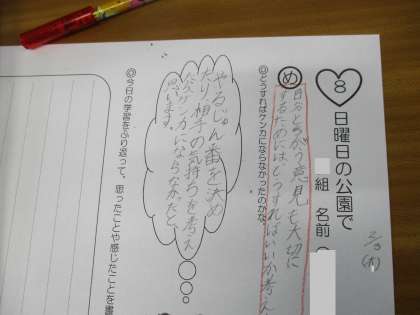 8
日曜日の公園で
組 名前
2/3
(木)
め
自分とちがう意見も大切に
するためにはどうすればいいか考え
◎どうすればケンカにならなかったのかな。
やるじゅん番を決め
たり、相手の気持ちを考え
たらケンカにならなかったと
思います。
◎今日の学習をふり返って、思ったことや感じたことを書